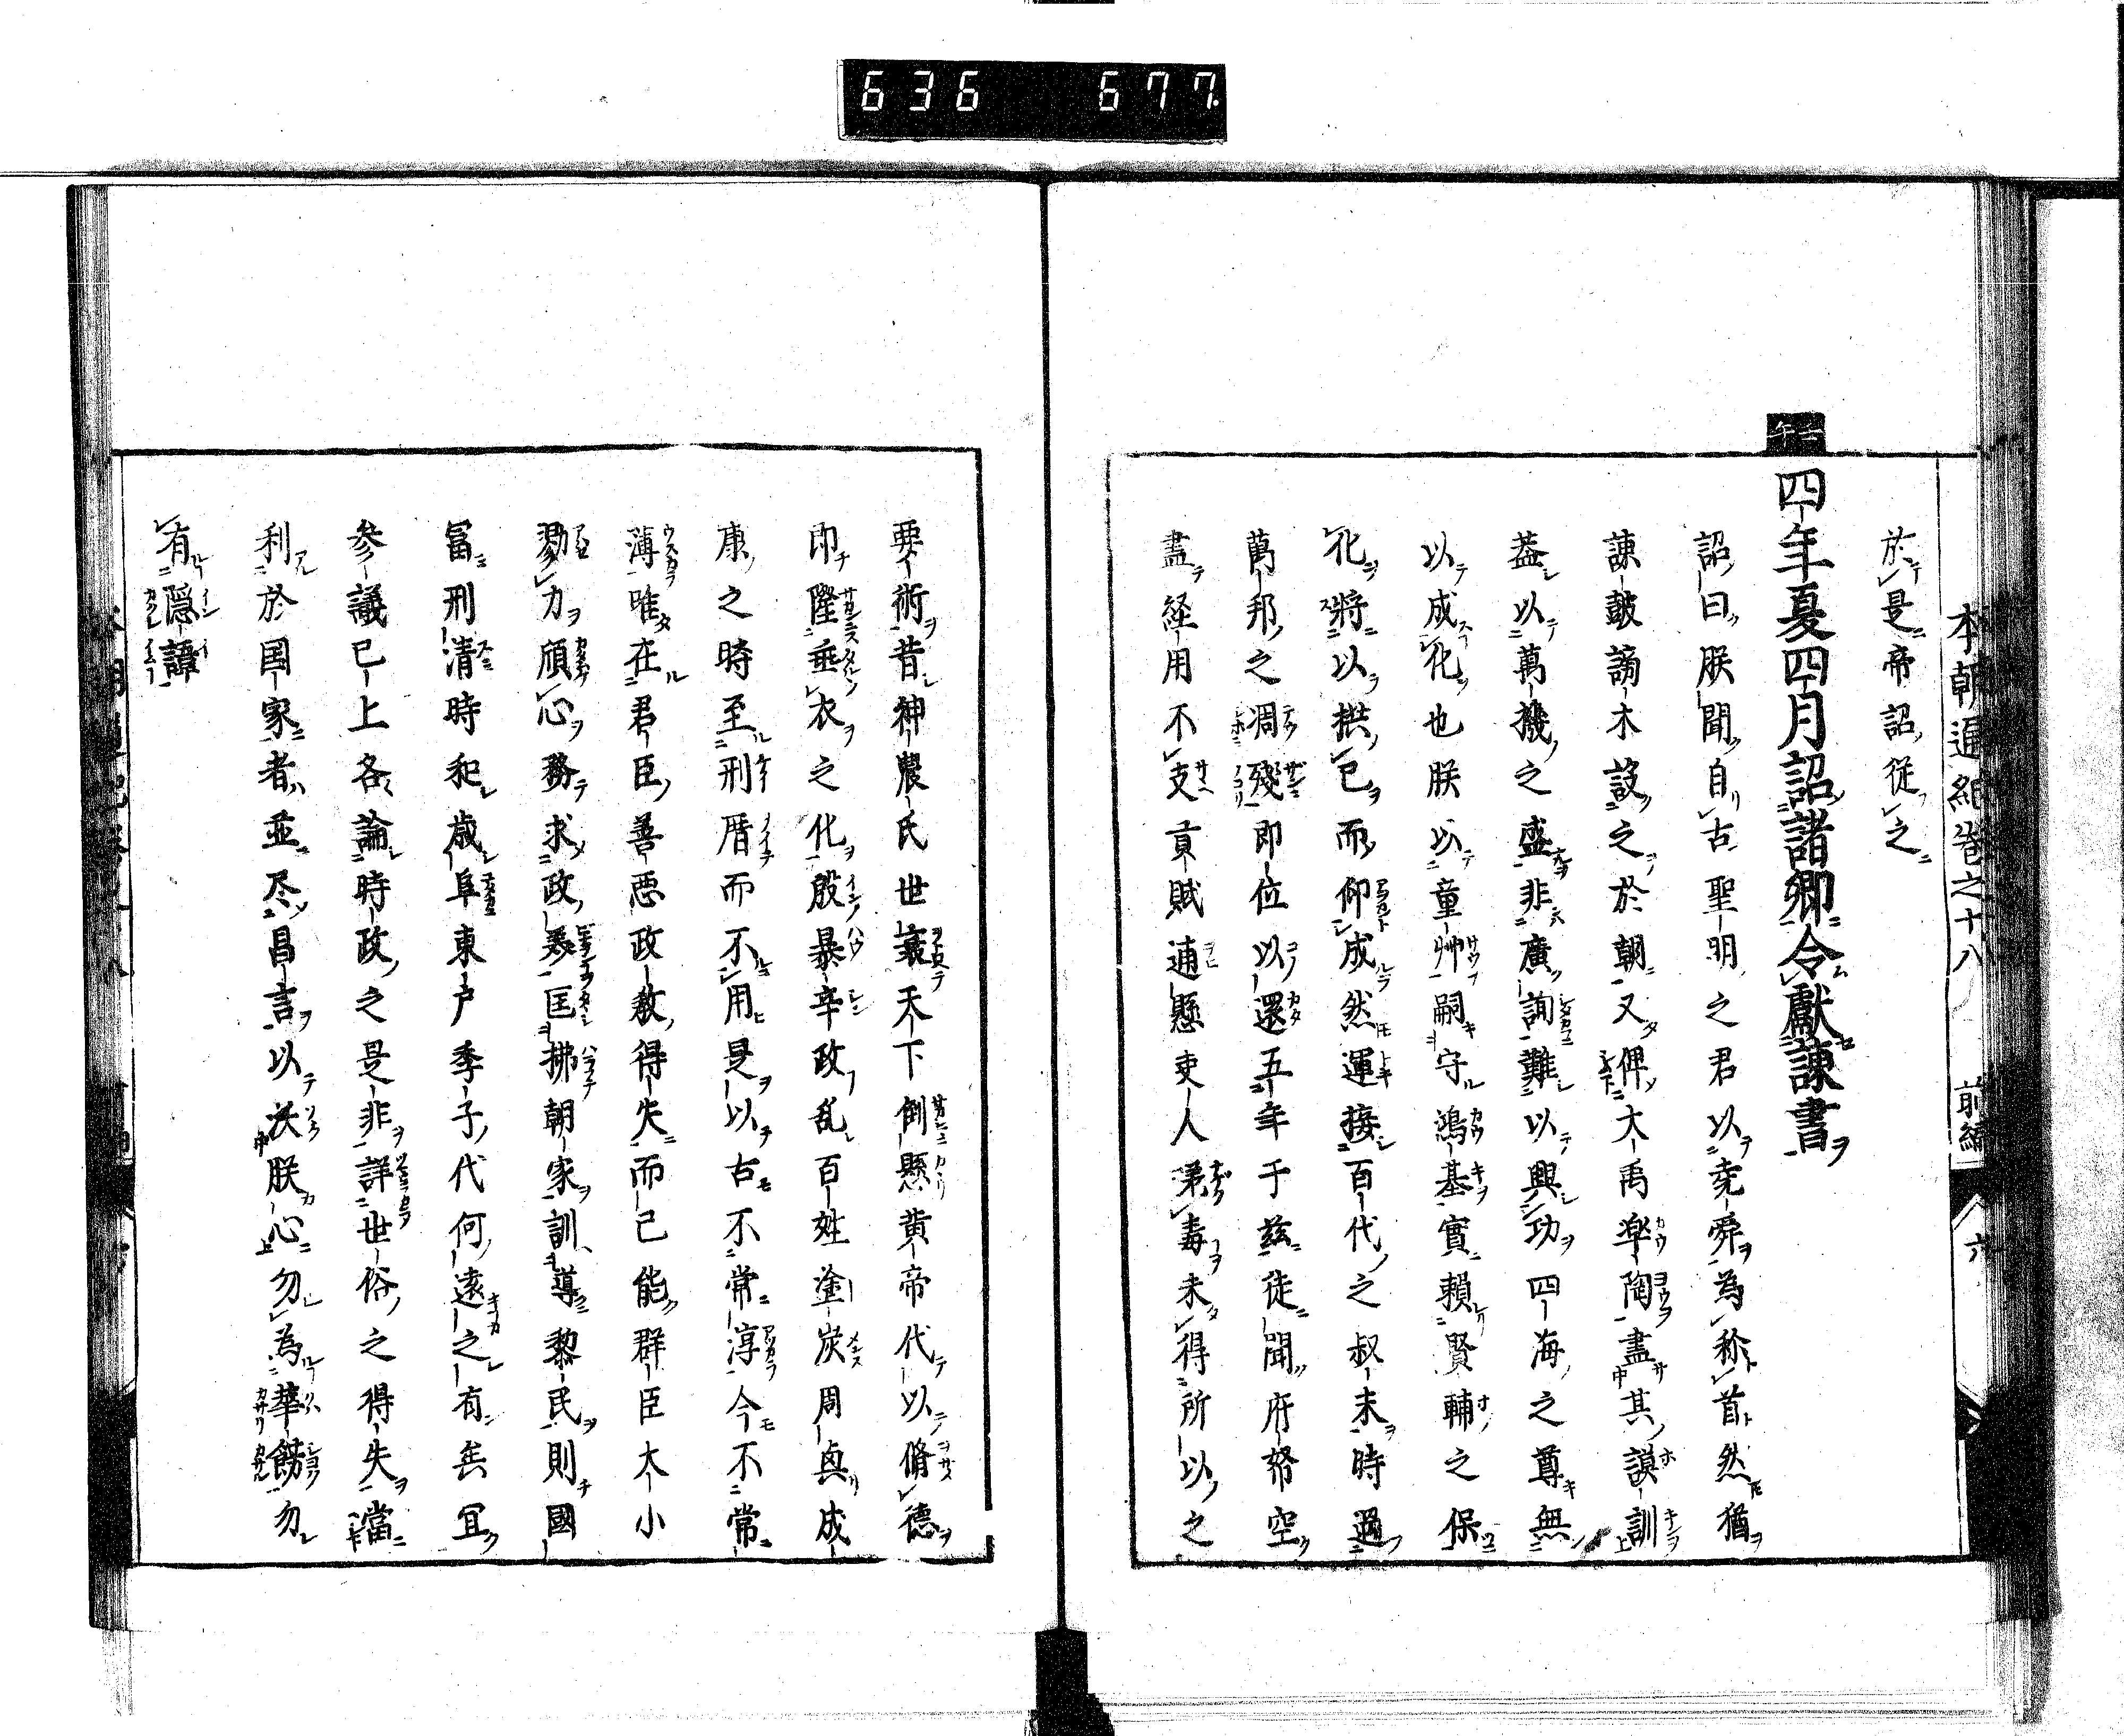 636 677
本朝通紀卷之十八 前編 六
於是帝詔從之
壬午
四年夏四月詔諸卿令獻諫書
詔曰朕聞自古聖明之君以堯舜為称首然猶
諫鼓謗木設之於朝又俾大禹皐陶盡其謨訓
蓋以萬機之盛非廣詢難以興功四海之尊無
以成化也朕以童丱嗣守鴻基實頼賢輔之保
化将以拱已而仰成然運接百代之叔末時過
萬邦之凋殘即位以還五年于兹徒聞府帑空
盡経用不支貢賦逋懸吏人苐毒未得所以之
要術昔神農氏世衰天下倒懸黄帝代以脩德
即隆垂衣之化殷暴辛政乱百姓塗炭周興成
康之時至刑厝而不用是以古不常淳今不常
薄唯在君臣善悪政教得失而已能群臣大小
勠力傾心務求政要匡拂朝家訓導黎民則國
冨刑清時和歳阜東户季子代何遠之有矣冝
参議已上各論時政之是非詳世俗之得失當
利於国家者並尽昌言以沃朕心勿為華餝勿
有隠諱